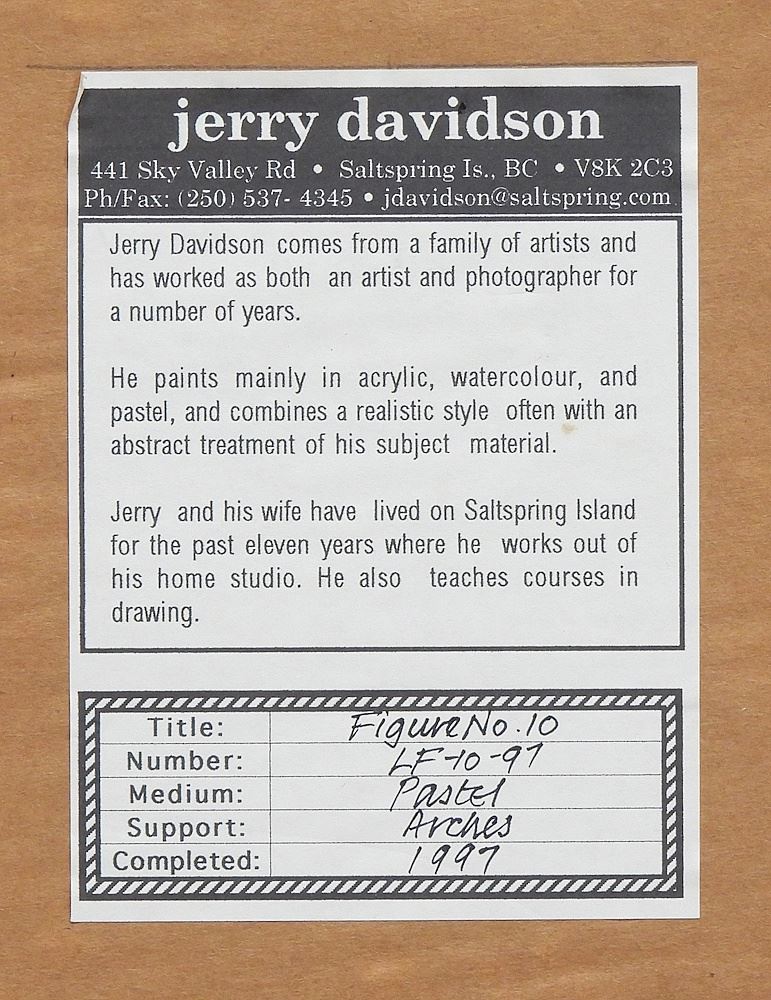 jerry davidson
441 Sky Valley Rd • Saltspring Is., BC • V8K 2C3
Ph/Fax: (250) 537- 4345 • jdavidson@saltspring.com
Jerry Davidson comes from a family of artists and
has worked as both an artist and photographer for
a number of years.
He paints mainly in acrylic, watercolour, and
pastel, and combines a realistic style often with an
abstract treatment of his subject material.
Jerry and his wife have lived on Saltspring Island
for the past eleven years where he works out of
his home studio. He also teaches courses in
drawing.
Title: Figure No. 10
Number: LF-10-97
Medium: Pastel
Support: Arches
Completed: 1997